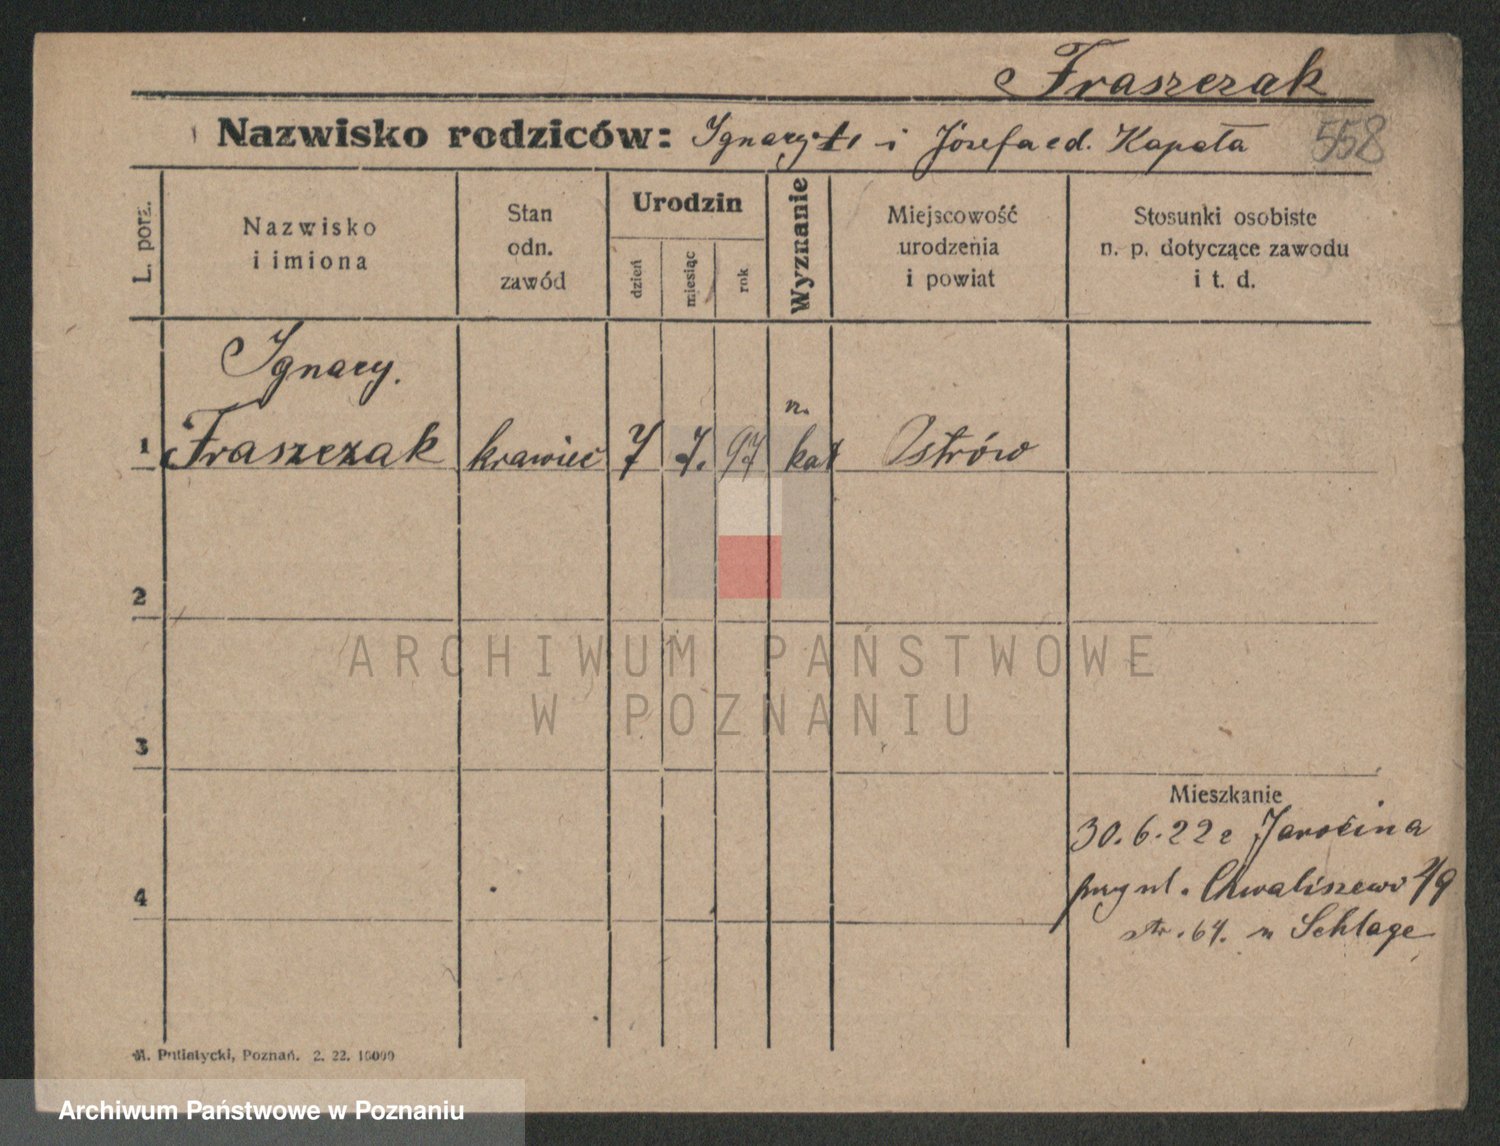 Fraszczak
Nazwisko rodziców: Ignacy i Józefa Kapała
558
L. porz.
Nazwisko
i imiona
Stan
odn.
zawód
Urodzin
dzień
miesiąc
rok
Wyznanie
Miejscowość
urodzenia
i powiat
Stosunki osobiste
n. p. dotyczące zawodu
i t. d.
Ignacy.
n.
1 Fraszczak krawiec 7 7. 97 kat Ostrów
2
ARCHIWUM PAŃSTWOWE
W POZNANIU
3
Mieszkanie
30.6.22 z Jarocina
przy ul. Chwaliszewo
4
str. 64. u Schlage
Putiatycki, Poznań. 2. 22. 10000
Archiwum Państwowe w Poznaniu